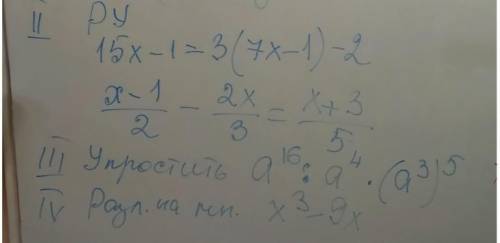 II РУ
15x-1=3(7x-1)-2
(x-1)/2 - 2x/3 = (x+3)/5
III Упростить a^16 : a^4 · (a^3)^5
IV Разл. на мн. x^3-9x